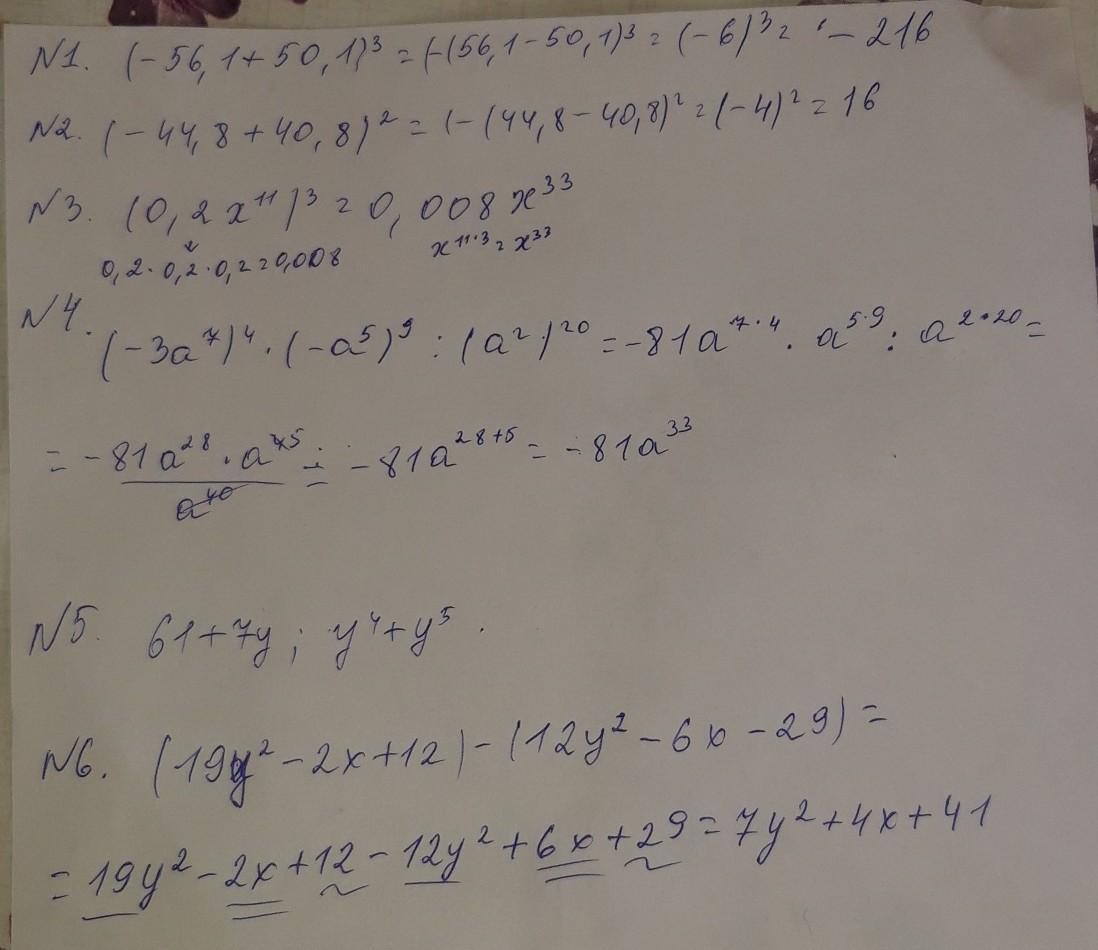 N1. (-56,1+50,1)³ = (-(56,1-50,1)³ = (-6)³ = -216
N2. (-44,8+40,8)² = (-(44,8-40,8)² = (-4)² = 16
N3. (0,2x¹¹)³ = 0,008x³³
0,2·0,2·0,2=0,008 x¹¹·³=x³³
N4.
(-3a⁷)⁴·(-a⁵)⁹:(a²)²⁰ = -81a⁷·⁴·a⁵·⁹:a²·²⁰ =
= -81a²⁸·a⁴⁵/a⁴⁰ = -81a²⁸⁺⁵ = -81a³³
N5. 61+7y; y⁴+y⁵.
N6. (19y²-2x+12)-(12y²-6x-29)=
=19y²-2x+12-12y²+6x+29=7y²+4x+41